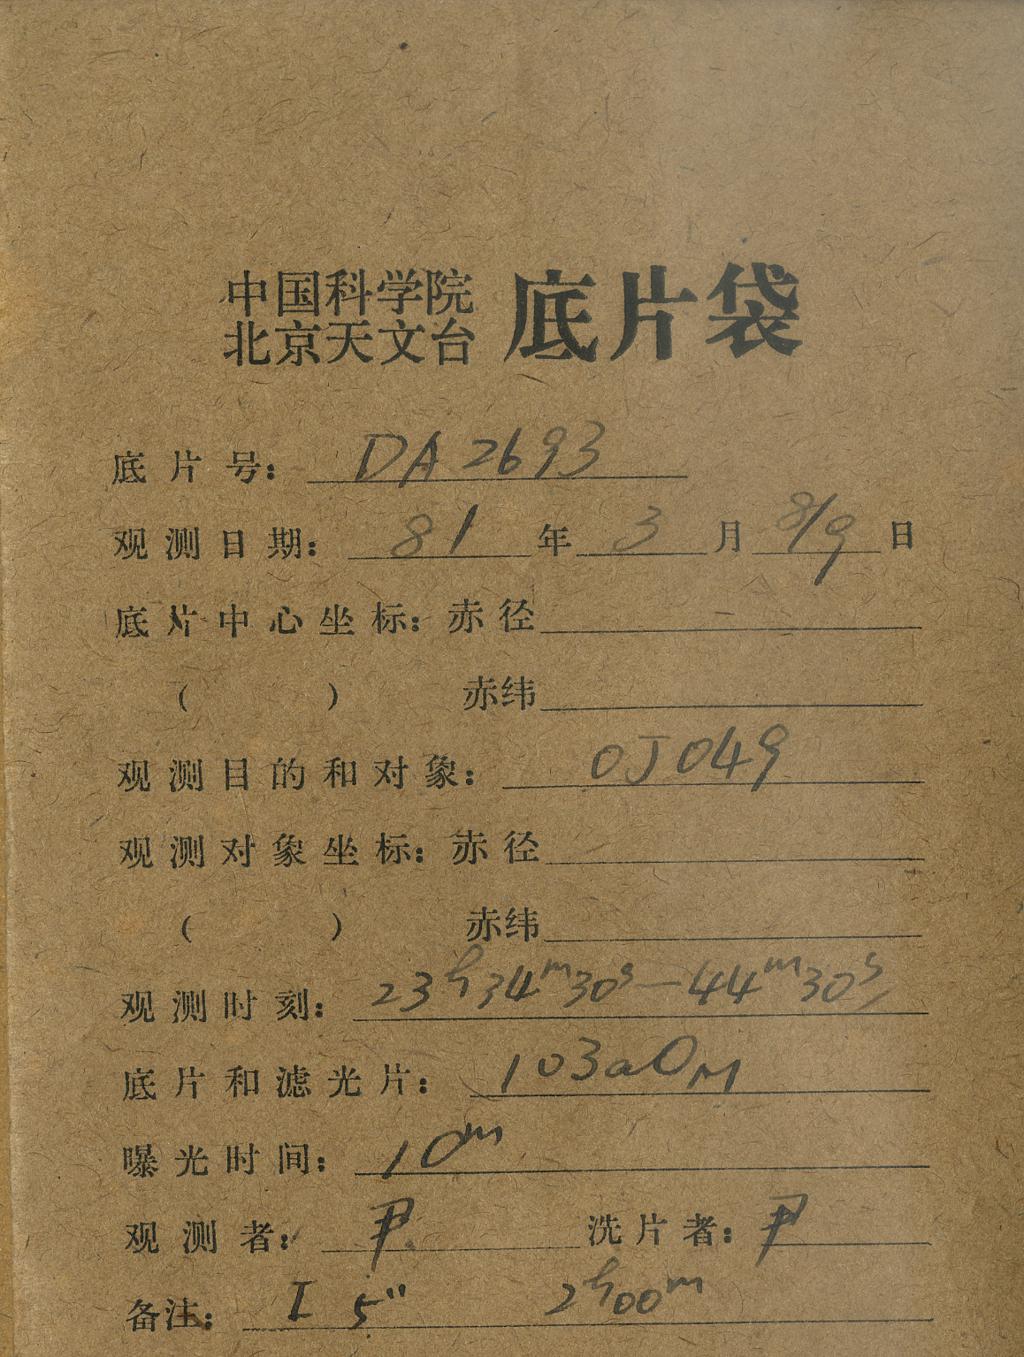 中国科学院
北京天文台 底片袋
底片号: DA2693
观测日期: 81年3月8/9日
底片中心坐标: 赤径
( ) 赤纬
观测目的和对象: OJ049
观测对象坐标: 赤径
( ) 赤纬
观测时刻: 23h34m30s—44m30s
底片和滤光片: 103aOM
曝光时间: 10m
观测者: 尹 洗片者: 尹
备注: I 5" 2h00m